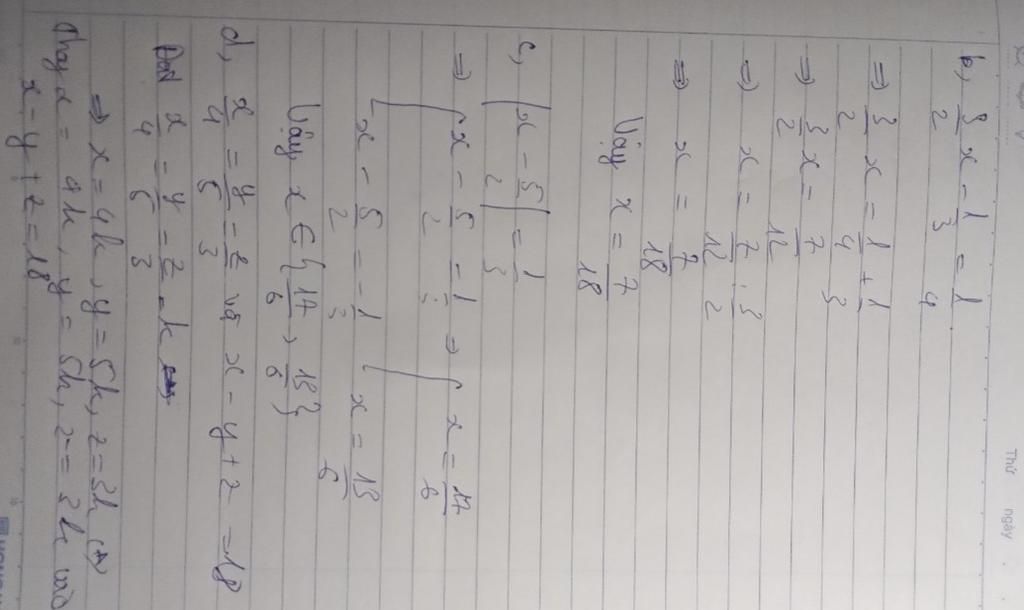 Thứ ngày
b, 3/2 x - 1/3 = 1/4
⇒ 3/2 x = 1/4 + 1/3
⇒ 3/2 x = 7/12
⇒ x = 7/12 : 3/2
⇒ x = 7/18
Vậy x = 7/18
c, |x - 5/2| = 1/3
⇒ [ x - 5/2 = 1/3 ⇒ [ x = 17/6
x - 5/2 = -1/3 x = 13/6
Vậy x ∈ {17/6, 13/6}
d, x/4 = y/5 = z/3 và x - y + z = 18
Đặt x/4 = y/5 = z/3 = k
⇒ x = 4k, y = 5k, z = 3k (*)
Thay x = 4k, y = 5k, z = 3k vào
x - y + z = 18